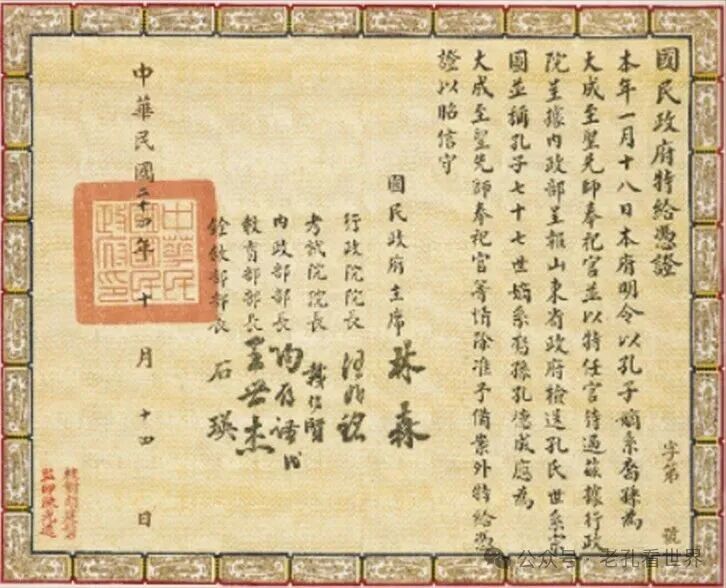 國民政府特給憑證
本年一月十八日本府明令以孔子嫡系裔孫為
大成至聖先師奉祀官並以特任官待遇茲據行政
院呈據內政部呈報山東省政府檢送孔氏世系宗
圖並稱孔子七十七世嫡系裔孫孔德成應為
大成至聖先師奉祀官等情除准予備案外特給憑
證以昭信守
字第 號
國民政府主席 林森
行政院院長 汪兆銘
考試院院長 戴傳賢
內政部部長 陶履謙代
教育部部長 王世杰
銓敘部部長 石瑛
中華民國二十四年十月十四日
中華民國國民政府印
監印
公众号·老孔看世界